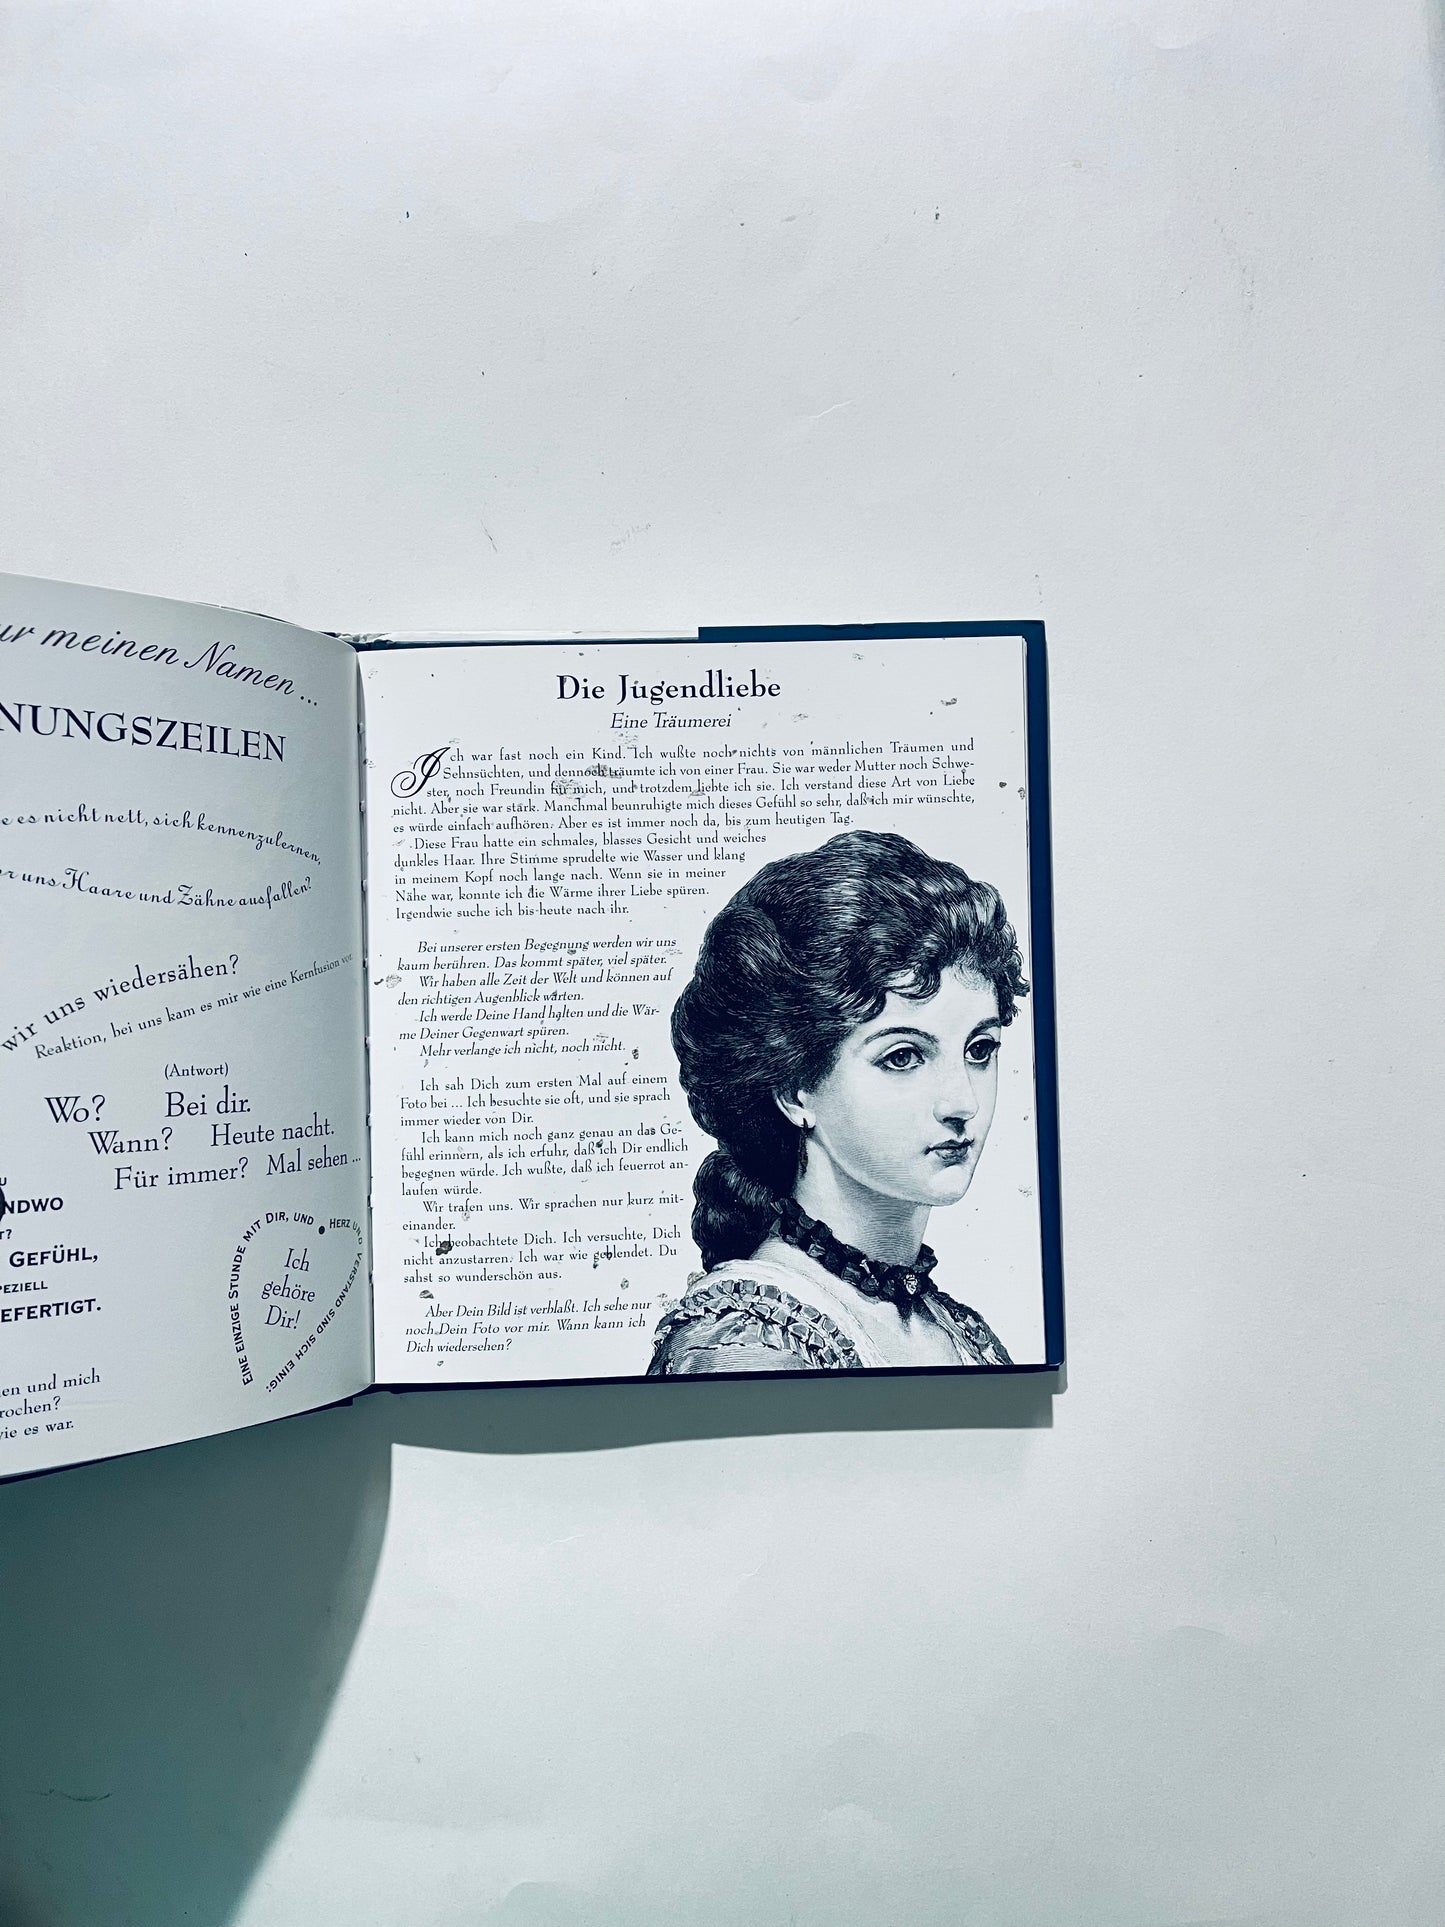 ur meinen Namen ...
NUNGSZEILEN
e es nicht nett, sich kennenzulernen,
r uns Haare und Zähne ausfallen?
wir uns wiedersähen?
Reaktion, bei uns kam es mir wie eine Kernfusion vor.
(Antwort)
Wo? Bei dir.
Wann? Heute nacht.
Für immer? Mal sehen ...
U
NDWO
T?
GEFÜHL,
PEZIELL
EFERTIGT.
EINE EINZIGE STUNDE MIT DIR, UND HERZ UND VERSTAND SIND SICH EINIG:
Ich
gehöre
Dir!
en und mich
rochen?
wie es war.
Die Jugendliebe
Eine Träumerei
Ich war fast noch ein Kind. Ich wußte noch nichts von männlichen Träumen und
Sehnsüchten, und dennoch träumte ich von einer Frau. Sie war weder Mutter noch Schwe-
ster, noch Freundin für mich, und trotzdem liebte ich sie. Ich verstand diese Art von Liebe
nicht. Aber sie war stark. Manchmal beunruhigte mich dieses Gefühl so sehr, daß ich mir wünschte,
es würde einfach aufhören. Aber es ist immer noch da, bis zum heutigen Tag.
Diese Frau hatte ein schmales, blasses Gesicht und weiches
dunkles Haar. Ihre Stimme sprudelte wie Wasser und klang
in meinem Kopf noch lange nach. Wenn sie in meiner
Nähe war, konnte ich die Wärme ihrer Liebe spüren.
Irgendwie suche ich bis heute nach ihr.
Bei unserer ersten Begegnung werden wir uns
kaum berühren. Das kommt später, viel später.
Wir haben alle Zeit der Welt und können auf
den richtigen Augenblick warten.
Ich werde Deine Hand halten und die Wär-
me Deiner Gegenwart spüren.
Mehr verlange ich nicht, noch nicht.
Ich sah Dich zum ersten Mal auf einem
Foto bei ... Ich besuchte sie oft, und sie sprach
immer wieder von Dir.
Ich kann mich noch ganz genau an das Ge-
fühl erinnern, als ich erfuhr, daß ich Dir endlich
begegnen würde. Ich wußte, daß ich feuerrot an-
laufen würde.
Wir trafen uns. Wir sprachen nur kurz mit-
einander.
Ich beobachtete Dich. Ich versuchte, Dich
nicht anzustarren. Ich war wie geblendet. Du
sahst so wunderschön aus.
Aber Dein Bild ist verblaßt. Ich sehe nur
noch Dein Foto vor mir. Wann kann ich
Dich wiedersehen?